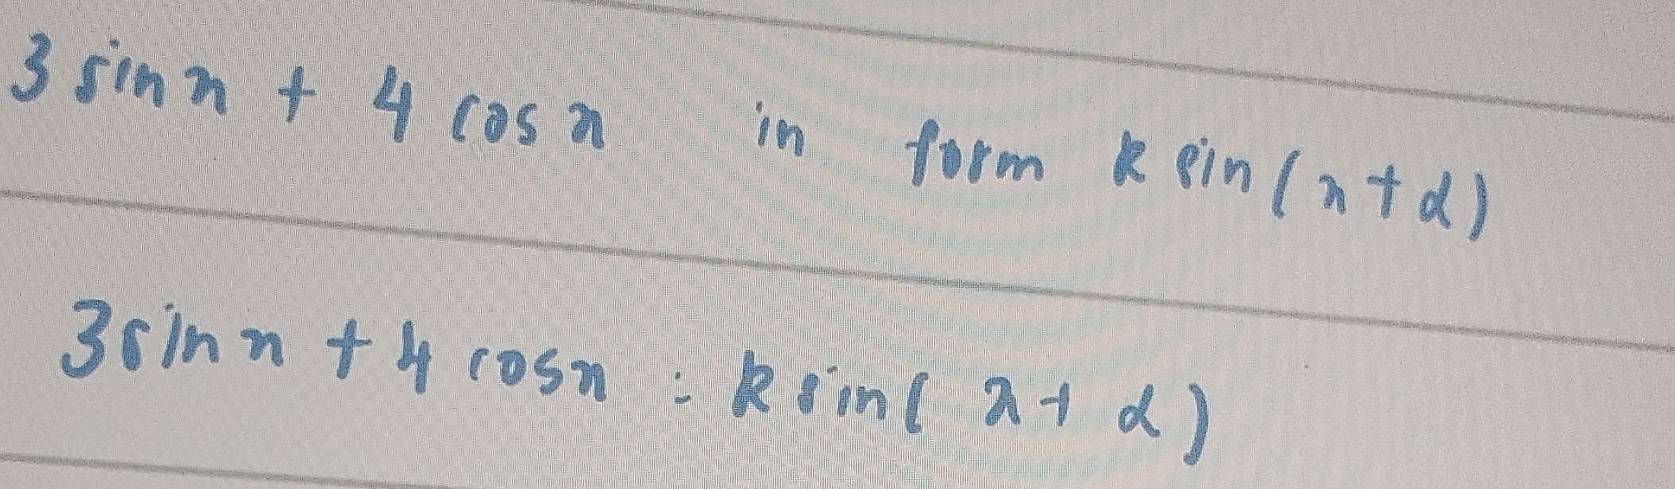 3 sin x + 4 cos x in form k sin(x+α)
3sin x + 4 cos x = k sin(x+α)